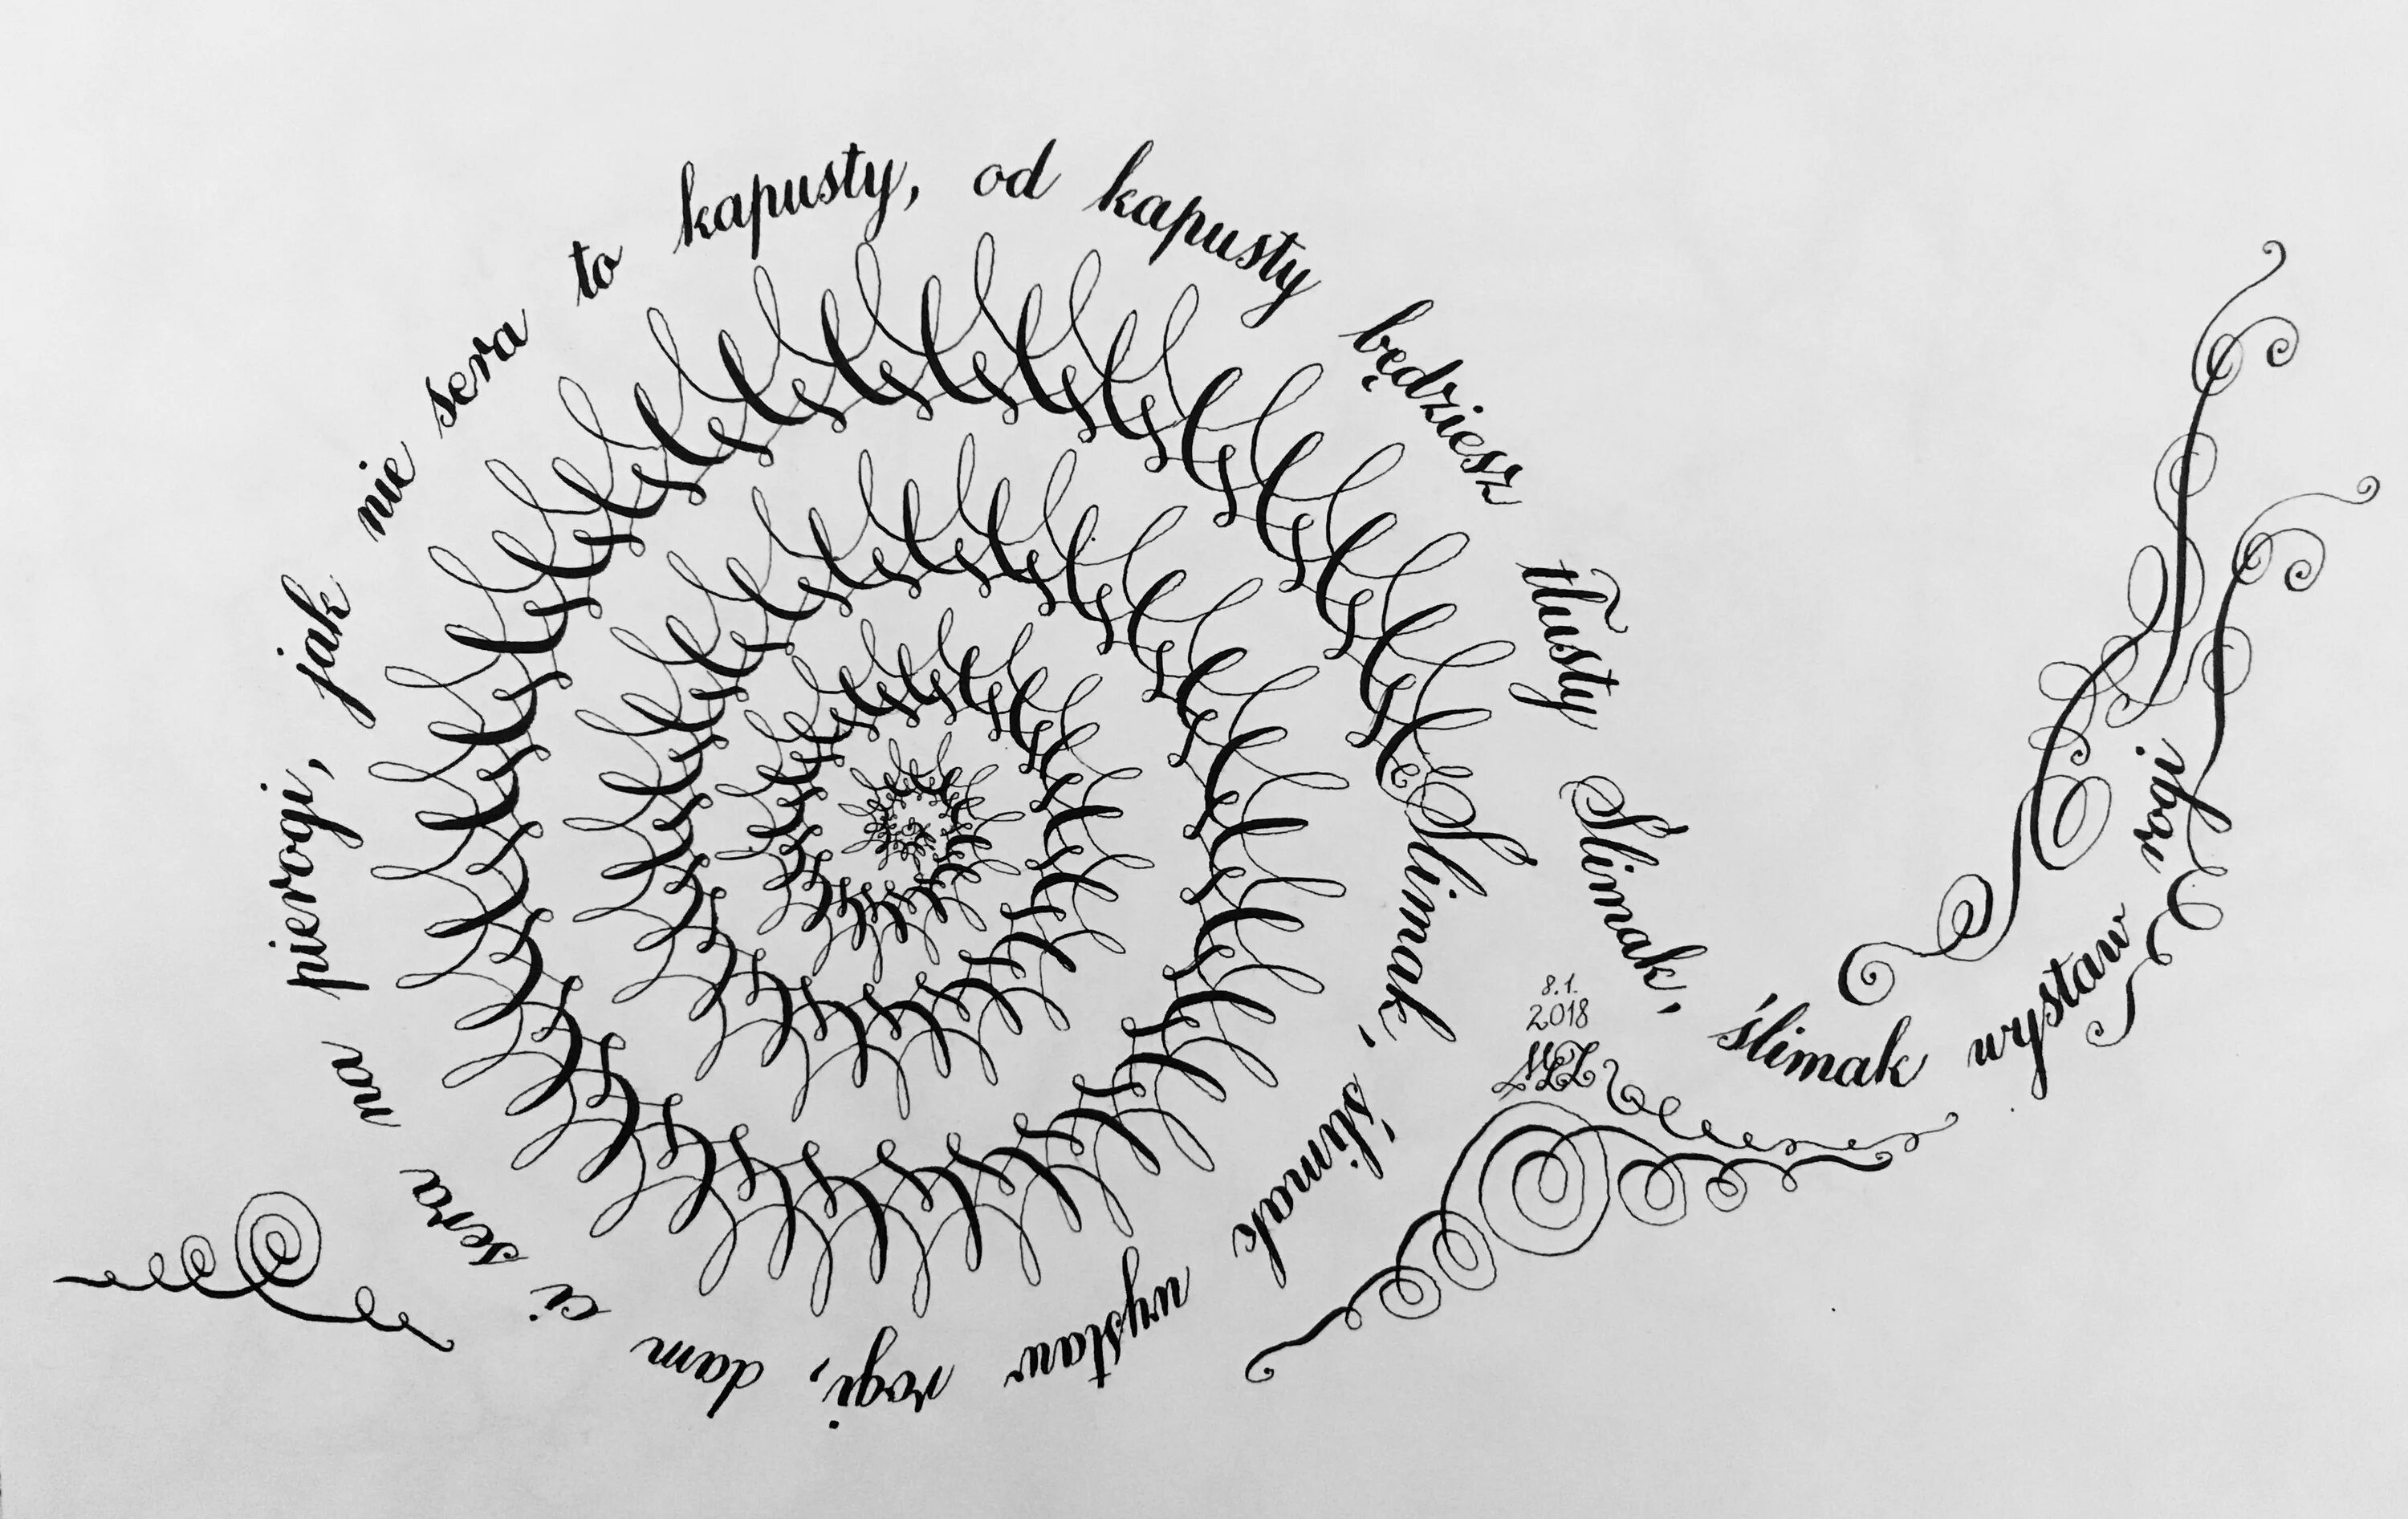 Slimak, ślimak wystaw rogi, dam ci sera na pierogi, jak nie sera to kapusty, od kapusty będziesz tłusty Slimak, ślimak wystaw rogi
8.1.
2018